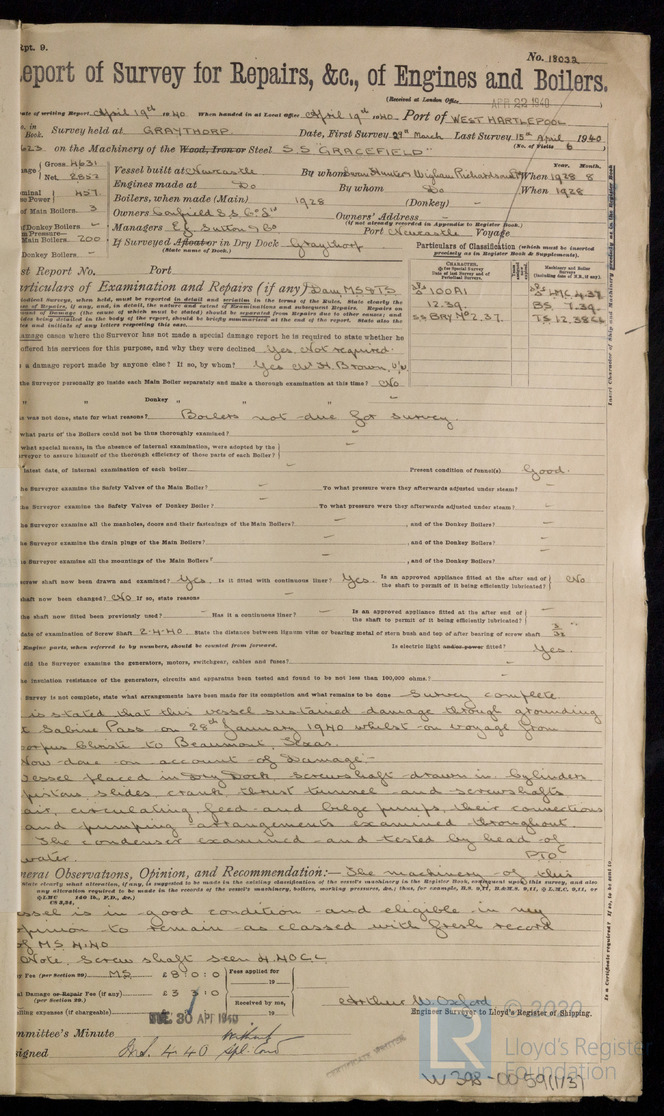 Rpt. 9.
No. 18032
eport of Survey for Repairs, &c., of Engines and Boilers.
(Received at London Office APR 22 1940)
ate of writing Report April 19th 1940 When handed in at Local Office April 19th 1940 Port of WEST HARTLEPOOL
o. in Book. Survey held at GRAYTHORP Date, First Survey 29th March Last Survey 15th April 1940
(No. of Visits 6)
623 on the Machinery of the Wood, Iron or Steel S.S "GRACEFIELD"
Gross 4631
Net 2857
Vessel built at Newcastle By whom Swan Hunter & Wigham Richardson Ltd When 1928 8
Year. Month.
Engines made at Do By whom Do When 1928
457
Boilers, when made (Main) 1928 (Donkey) -
of Main Boilers 3
Owners S.S. Co Ld Owners' Address -
(if not already recorded in Appendix to Register Book.)
of Donkey Boilers -
Managers Sutton & Co Port Newcastle Voyage
Main Boilers 200
If Surveyed Afloat or in Dry Dock Graythorp
(State name of Dock.)
Donkey Boilers -
Particulars of Classification (which must be inserted precisely as in Register Book & Supplements).
st Report No. Port
articulars of Examination and Repairs (if any) Dam MS & TS
100A1
12.39
SS BRY No 2.37.
LMC 4.37
BS 7.39
TS 12.38 CL
amage cases where the Surveyor has not made a special damage report he is required to state whether he
offered his services for this purpose, and why they were declined Yes. Not required.
a damage report made by anyone else? If so, by whom? Yes W. H. Brown,
the Surveyor personally go inside each Main Boiler separately and make a thorough examination at this time? No
" " Donkey " " " -
is was not done, state for what reasons? Boilers not due for survey.
what parts of the Boilers could not be thoroughly examined? -
what special means, in the absence of internal examination, were adopted by the
rveyor to assure himself of the thorough efficiency of those parts of each Boiler? -
latest date, of internal examination of each boiler - Present condition of funnel(s) Good.
the Surveyor examine the Safety Valves of the Main Boiler? - To what pressure were they afterwards adjusted under steam? -
the Surveyor examine the Safety Valves of Donkey Boiler? - To what pressure were they afterwards adjusted under steam? -
he Surveyor examine all the manholes, doors and their fastenings of the Main Boilers? - , and of the Donkey Boilers? -
he Surveyor examine the drain plugs of the Main Boilers? - , and of the Donkey Boilers? -
he Surveyor examine all the mountings of the Main Boilers? - , and of the Donkey Boilers? -
screw shaft now been drawn and examined? Yes. Is it fitted with continuous liner? Yes. Is an approved appliance fitted at the after end of the shaft to permit of it being efficiently lubricated? No
shaft now been changed? No If so, state reasons -
the shaft now fitted been previously used? - Has it a continuous liner? - Is an approved appliance fitted at the after end of the shaft to permit of it being efficiently lubricated? -
date of examination of Screw Shaft 2.4.40 State the distance between lignum vitæ or bearing metal of stern bush and top of after bearing of screw shaft 3/32"
Engine parts, when referred to by numbers, should be counted from forward. Is electric light and/or power fitted? Yes.
did the Surveyor examine the generators, motors, switchgear, cables and fuses? -
he insulation resistance of the generators, circuits and apparatus been tested and found to be not less than 100,000 ohms? -
Survey is not complete, state what arrangements have been made for its completion and what remains to be done Survey complete
is stated that this vessel sustained damage through grounding
t Sabine Pass on 28th January 1940 whilst on voyage from
orpus Christi to Beaumont, Texas.
Now done on account of Damage:-
Vessel placed in Dry Dock. screwshaft drawn in. Cylinders
pistons, slides, crank thrust tunnel and screwshafts
air, circulating, feed and bilge pumps, their connections
and pumping arrangements examined throughout.
The condenser examined and tested by head of
water. P.T.O.
neral Observations, Opinion, and Recommendation:— The machinery of this
(State clearly what alteration, if any, is suggested to be made in the existing classification of the vessel's machinery in the Register Book, consequent upon this survey, and also
any alteration required to be made in the records of the vessel's machinery, boilers, working pressures, &c.; thus, for example, B.S. 9,11, B.&M.S. 9,11, LMC 9,11, or
essel is in good condition and eligible in my
opinion to remain as classed with fresh record
of MS 4.40
Note. Screw shaft seen 4.40 C.L.
y Fee (per Section 29) MS £8:0:0
al Damage or Repair Fee (if any) £3 3:0
(per Section 29.)
lling expenses (if chargeable)
Fees applied for 19
Received by me, 19
Arthur W. Oxford
Engineer Surveyor to Lloyd's Register of Shipping.
mmittee's Minute
TUE 30 APR 1940
signed 4.40
CERTIFICATE WRITTEN
© 2020
LR
Lloyd's Register
Foundation
W398-0059(1/3)